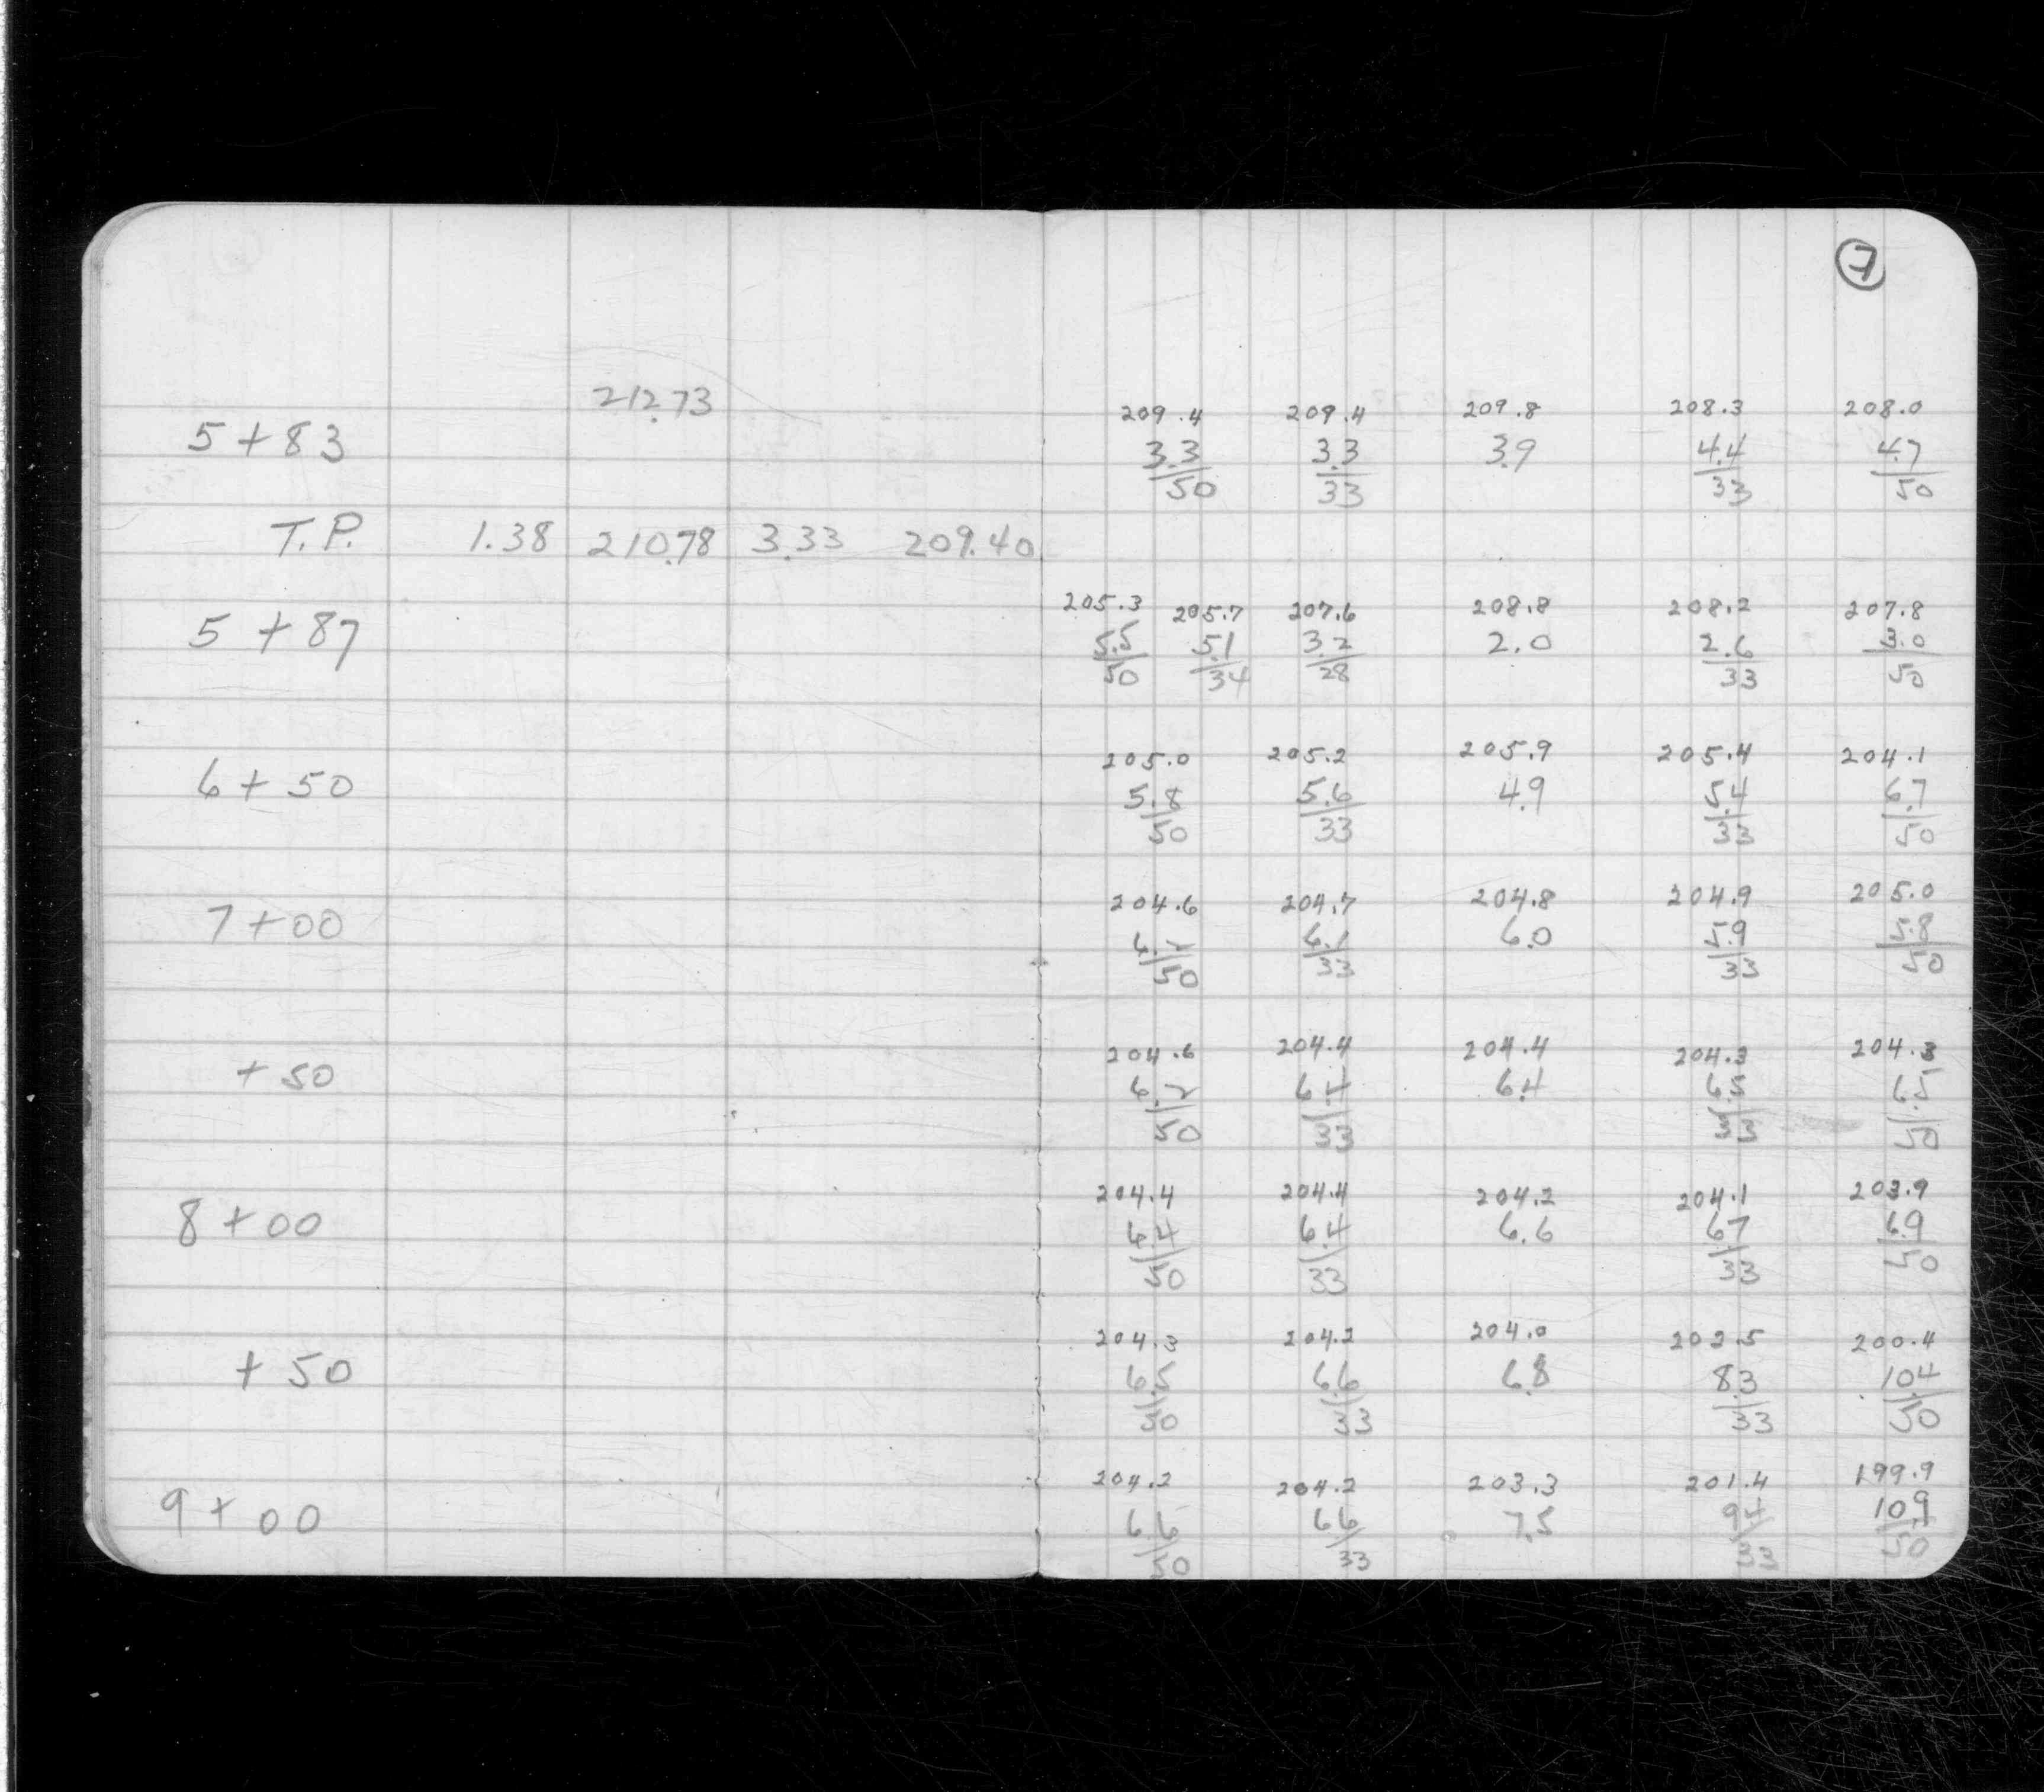 7
212.73
209.4 209.4 209.8 208.3 208.0
5+83 3.3 3.3 3.9 4.4 4.7
50 33 33 50
T.P. 1.38 210.78 3.33 209.40
205.3 205.7 207.6 208.8 208.2 207.8
5+87 5.5 5.1 3.2 2.0 2.6 3.0
50 34 28 33 50
205.0 205.2 205.9 205.4 204.1
6+50 5.8 5.6 4.9 5.4 6.7
50 33 33 50
204.6 204.7 204.8 204.9 205.0
7+00 6.2 6.1 6.0 5.9 5.8
50 33 33 50
204.6 204.4 204.4 204.3 204.3
+50 6.2 6.4 6.4 6.5 6.5
50 33 33 50
204.4 204.4 204.2 204.1 203.9
8+00 6.4 6.4 6.6 6.7 6.9
50 33 33 50
204.3 204.2 204.0 202.5 200.4
+50 6.5 6.6 6.8 8.3 10.4
50 33 33 50
204.2 204.2 203.3 201.4 199.9
9+00 6.6 6.6 7.5 9.4 10.9
50 33 33 50